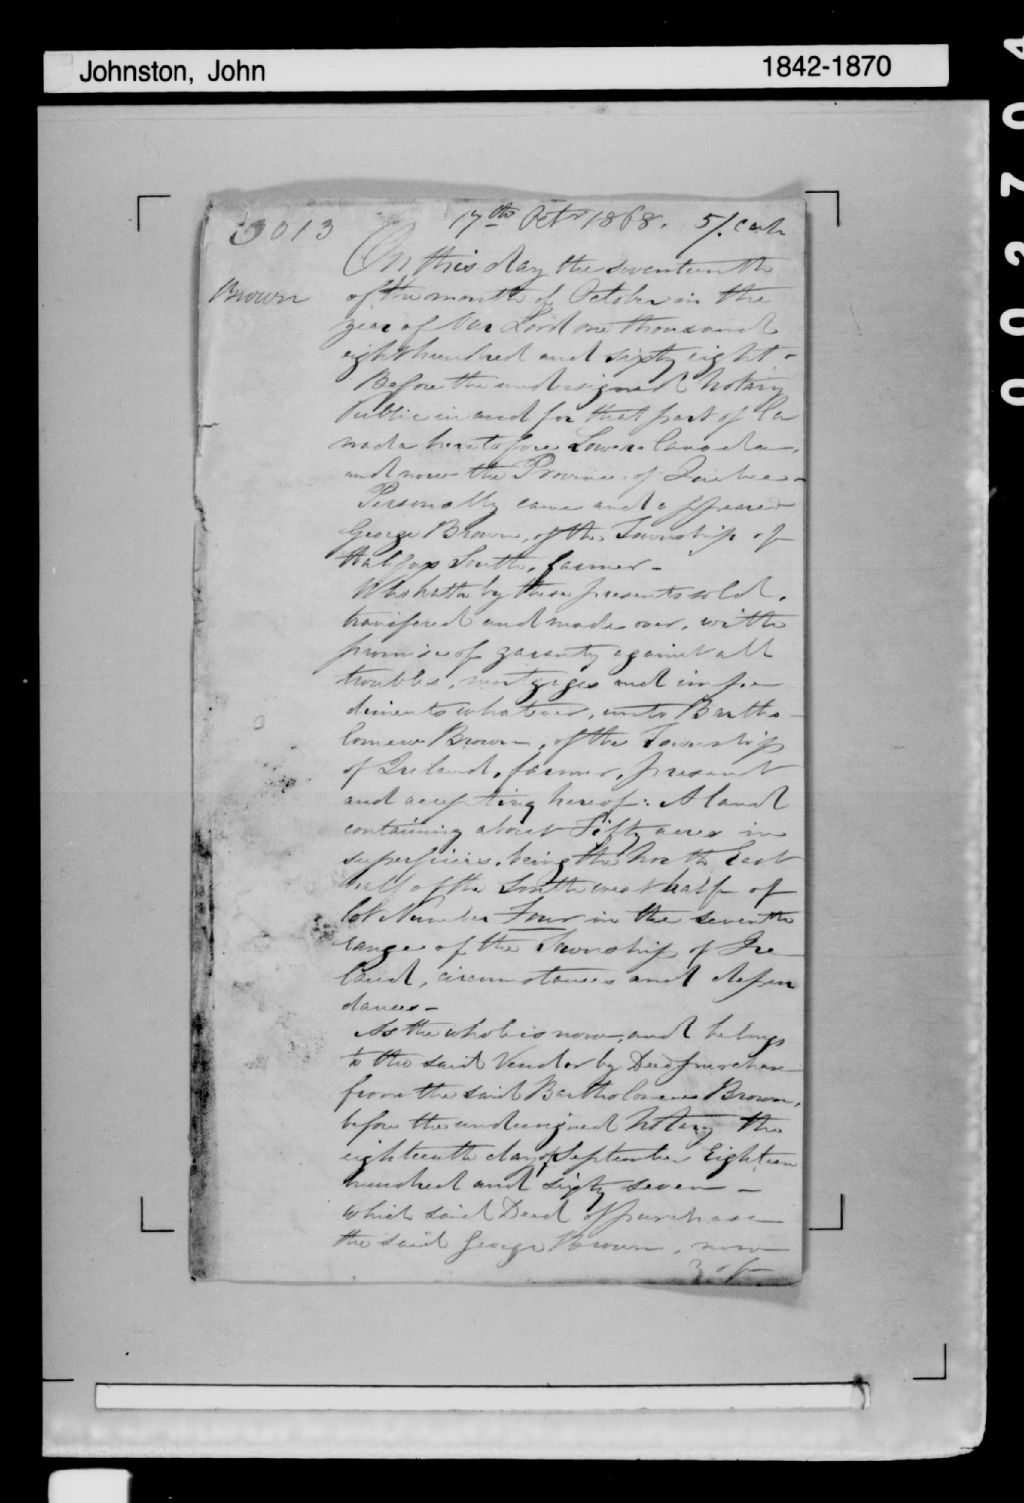 Johnston, John 1842-1870
002704
3013 17th Octr 1868. 5/. each
Brown
On this day the seventeenth
of the month of October in the
year of Our Lord one thousand
eight hundred and sixty eight -
Before the undersigned Notary
Public in and for that part of Ca
nada heretofore Lower Canada,
and now the Province of Quebec -
Personally came and appeared
George Brown, of the Township of
Halifax South, farmer -
Who hath by these presents sold,
transfered and made over, with
promise of garanty against all
troubles, mortgages and impe
diments whatever, unto Bartho-
lomew Brown, of the Township
of Ireland, farmer, present
and accepting hereof: A land
containing about Fifty acres in
superficies, being the North East
half of the South west half of
lot Number Four in the seventh
range of the Township of Ire-
land, circumstances and depen
dances -
As the whole is now, and belongs
to the said Vendor by Deed purchase
from the said Bartholomew Brown,
before the undersigned Notary the
eighteenth day of September Eighteen
hundred and sixty seven -
which said Deed of purchase
the said George Brown, now